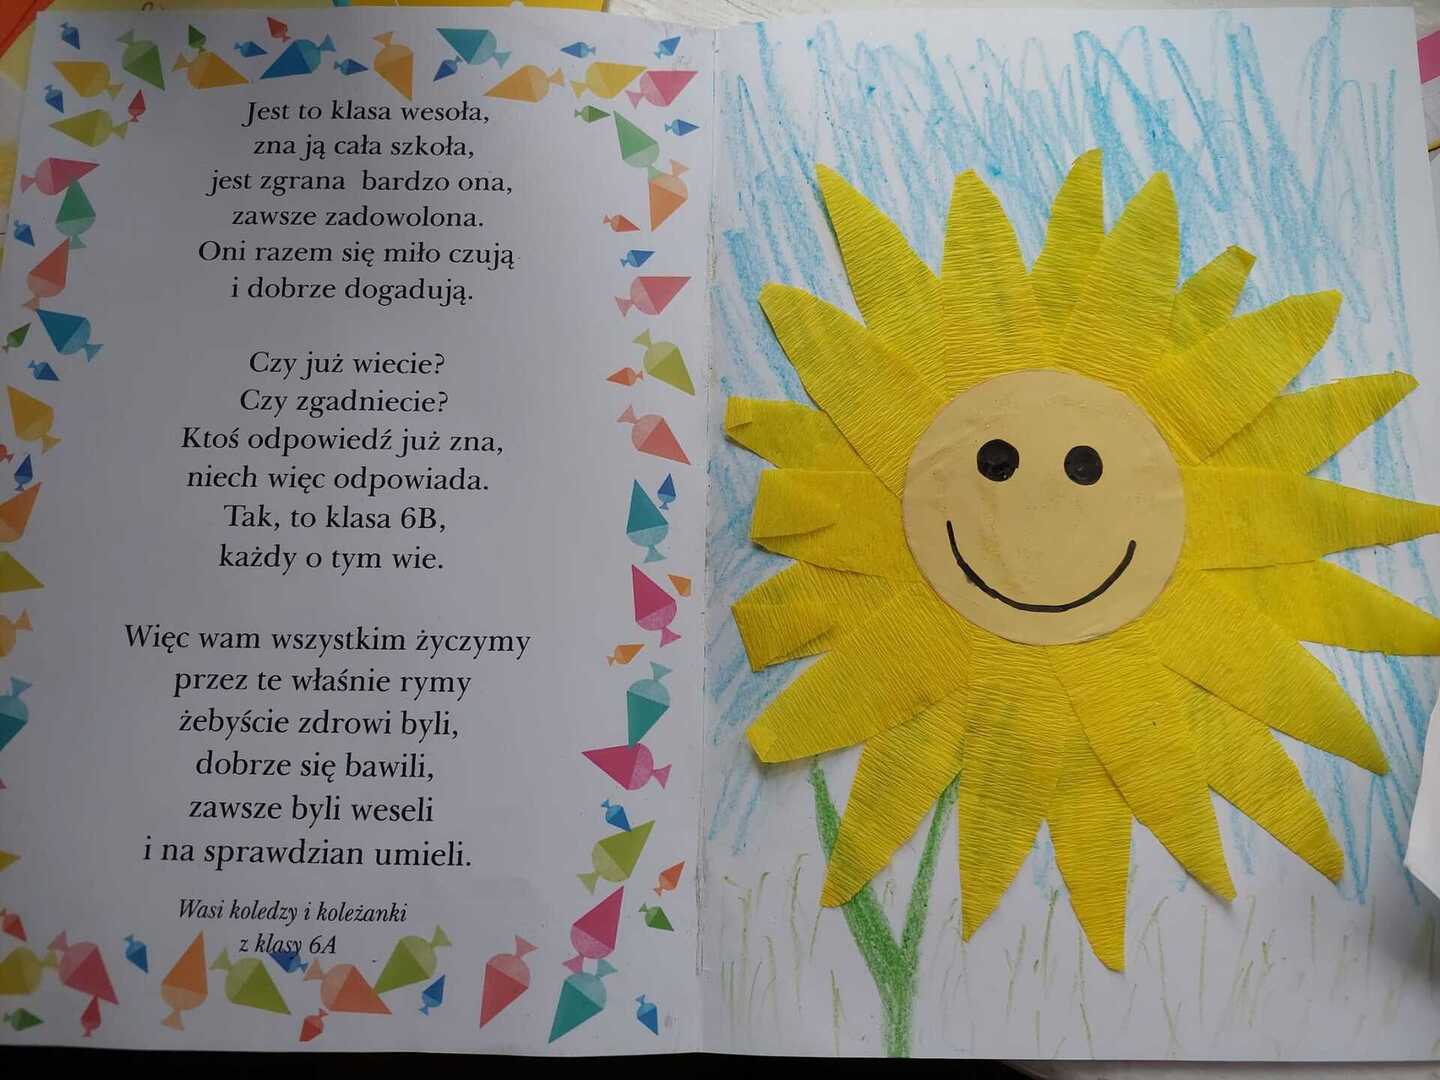 Jest to klasa wesoła,
zna ją cała szkoła,
jest zgrana bardzo ona,
zawsze zadowolona.
Oni razem się miło czują
i dobrze dogadują.
Czy już wiecie?
Czy zgadniecie?
Ktoś odpowiedź już zna,
niech więc odpowiada.
Tak, to klasa 6B,
każdy o tym wie.
Więc wam wszystkim życzymy
przez te właśnie rymy
żebyście zdrowi byli,
dobrze się bawili,
zawsze byli weseli
i na sprawdzian umieli.
Wasi koledzy i koleżanki
z klasy 6A